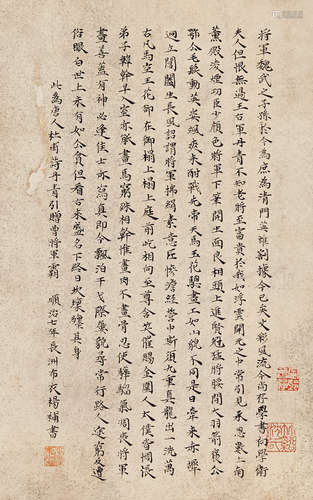 將軍魏武之子孫於今為庶為清門英雄割據今已矣文彩風流今尚存學書初學衛
夫人但恨無過王右軍丹青不知老將至富貴於我如浮雲開元之中常引見承恩數上南
薰殿凌煙功臣少顏色將軍下筆開生面良相頭上進賢冠猛將腰間大羽箭褒公
鄂公毛髮動英姿颯爽來酣戰先帝天馬玉花驄畫工如山貌不同是日牽來赤墀下
迥立閶闔生長風詔謂將軍拂絹素意匠慘澹經營中斯須九重真龍出一洗萬
古凡馬空玉花卻在御榻上榻上庭前屹相向至尊含笑催賜金圉人太僕皆惆悵
弟子韓幹早入室亦能畫馬窮殊相幹惟畫肉不畫骨忍使驊騮氣凋喪將軍
畫善蓋有神必逢佳士亦寫真即今飄泊干戈際屢貌尋常行路人途窮反遭
俗眼白世上未有如公貧但看古來盛名下終日坎壈其身
此為唐人杜甫詩丹青引贈曹將軍霸 順治七年長洲布衣楊補書